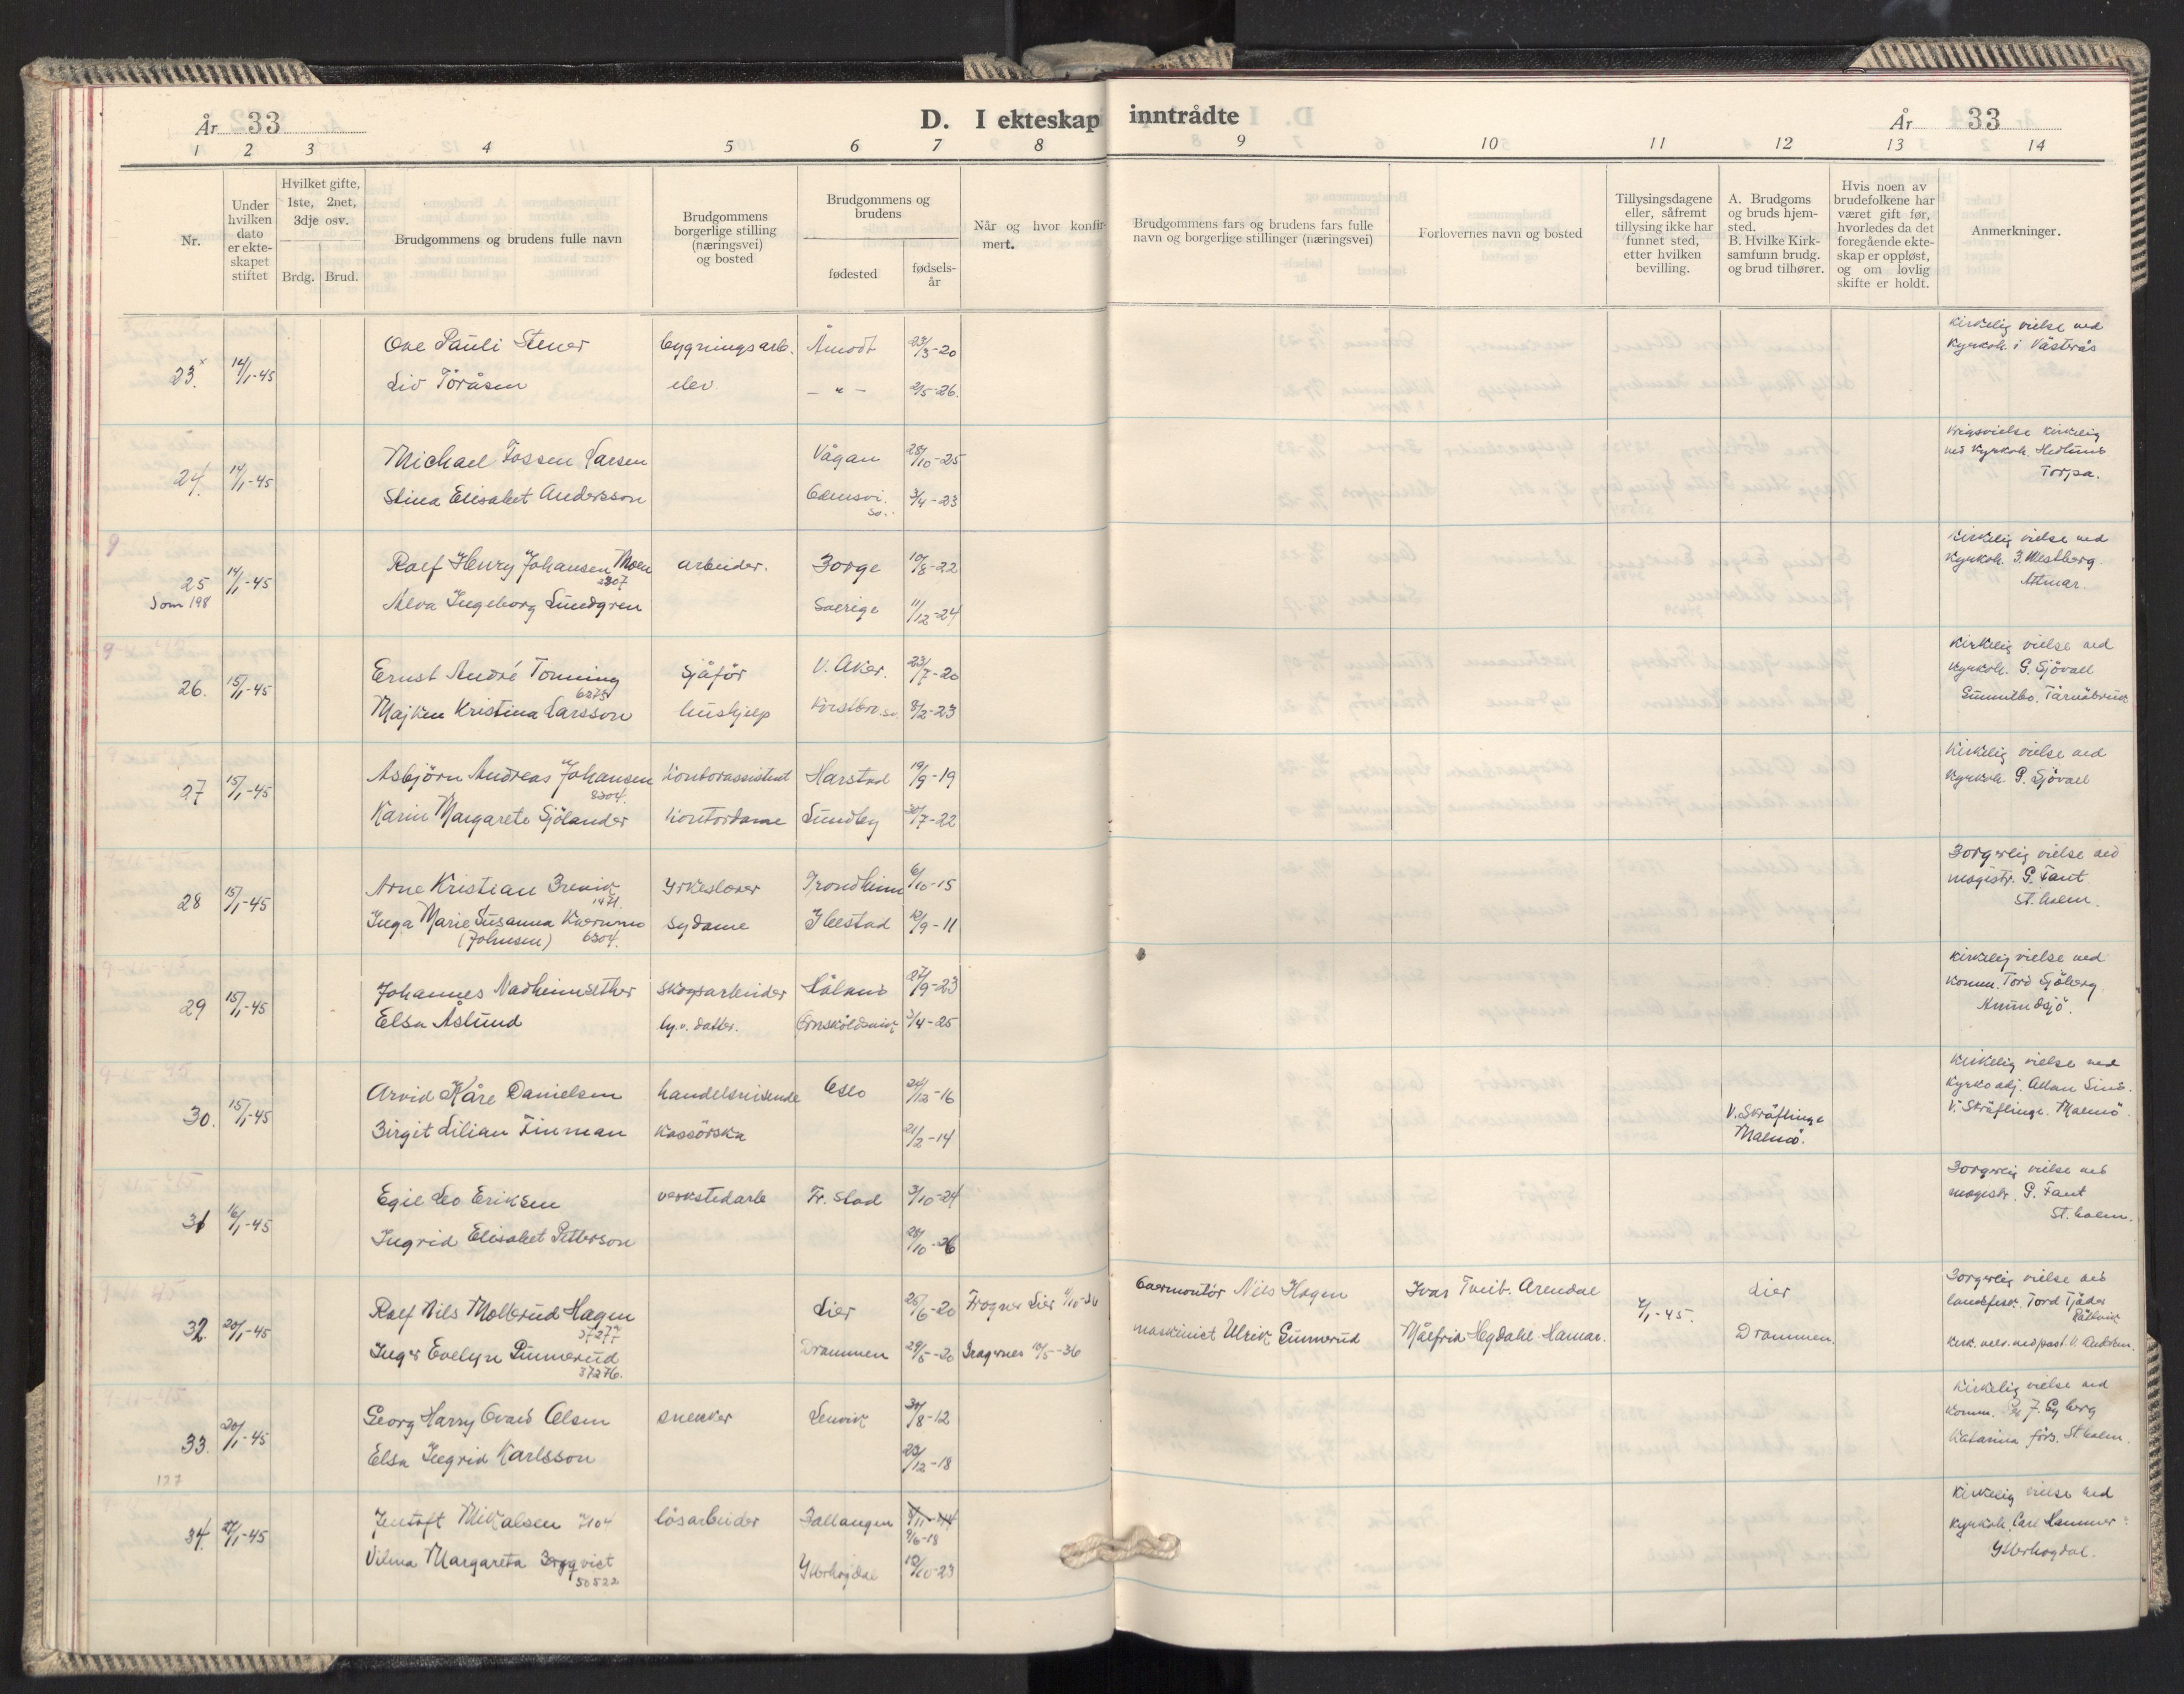 År 33
D. I ekteskap inntrådte
År 33
1 2 3 4 5 6 7 8 9 10 11 12 13 14
Nr.
Under hvilken dato er ekteskapet stiftet
Hvilket gifte, 1ste, 2net, 3dje osv.
Brdg. Brud.
Brudgommens og brudens fulle navn
Brudgommens borgerlige stilling (næringsvei) og bosted
Brudgommens og brudens
fødested
fødsels-år
Når og hvor konfirmert.
Brudgommens fars og brudens fars fulle navn og borgerlige stillinger (næringsvei)
Forlovernes navn og bosted
Tillysingsdagene eller, såfremt tillysing ikke har funnet sted, etter hvilken bevilling.
A. Brudgoms og bruds hjemsted.
B. Hvilke Kirksamfunn brudg. og brud tilhører.
Hvis noen av brudefolkene har været gift før, hvorledes da det foregående ekteskap er oppløst, og om lovlig skifte er holdt.
Anmerkninger.
23. 14/1-45 Ove Pauli Stener bygningsarb. Åmodt 23/3-20
Liv Töråsen elev - " - 2/5-26.
kirkelig vielse ved
kyrkoh. i Västerås
24. 14/1-45 Michael Fossen Larsen Vågan 28/10-25
Stina Elisabet Andersson Odensvi. sv. 3/4-23
krigsvielse kirkelig
ved kyrkoh. Hedlund
Torpa.
25 14/1-45 Rolf Henry Johansen Moen arbeider. Borge 10/8-22
Som 198
Alva Ingeborg Lundgren Sverige 11/12-24
kirkelig vielse ved
kyrkoh. Z. Westberg.
Attmar.
26. 15/1-45 Ernst André Tonning sjåför V. Aker. 23/7-20
6275
Majken Kristina Larsson hushjelp 8/2-23
kirkelig vielse ved
kyrkoh. G. Sjövall
27 15/1-45 Asbjörn Andreas Johansen kontorassistent Harstad 19/9-19
8304.
Karin Margareta Sjölander kontordame Lundby 30/7-22
kirkelig vielse ved
kyrkoh. G. Sjövall
28 15/1-45 Arne Kristian Brevik yrkeslærer Trondheim 6/10-15
1471.
Inga Marie Susanna Kværnmo sydame Ibestad 12/9-11
(Johnsen) 6304.
Borgerlig vielse ved
magistr. G. Fant
St.holm.
29 15/1-45 Johannes Nadheimsether skogsarbeider Håland 27/9-23
Elsa Åslund Örnsköldsvik 3/4-25
kirkelig vielse ved
komm. Tord Sjöberg
Anundsjö.
30. 15/1-45 Arvid Kåre Danielsen handelsreisende Oslo 24/12-16
Birgit Lilian Finman kassörska 21/2-14
V. Skräflinge
Malmö.
kirkelig vielse ved
kyrkoadj. Allan Lind.
V. Skräflinge. Malmö.
31 16/1-45 Egil Leo Eriksen verkstedarb Fr. stad 3/10-24
Ingrid Elisabet Petterson 28/10-26
Borgerlig vielse ved
magistr. G. Fant
St. holm.
32. 20/1-45 Rolf Nils Mollerud Hagen Lier 26/6-20 Frogner Lier
37277
Overmontör Nils Hagen Ivar Tveit. Arendal 7/1-45. Lier
Inger Evelyn Gunnerud Drammen 29/5-20 Bragernes 10/5-36
37276.
maskinist Ulrik Gunnerud Målfrid Hegdahl. Hamar. Drammen.
Borgerlig vielse ved
landsfisk. Tord Tjäder
Rättvik
33. 20/1-45 Georg Harry Ovald Olsen snekker Lenvik 30/8-12
Elsa Ingrid Karlsson 23/12-18
127
kirkelig vielse ved
Katarina förs. St.holm.
34. 27/1-45 Jentoft Mikalsen 7104 lösarbeider Ballangen 9/6-18
Vilma Margareta Bergqvist Ytterhogdal 12/10-23
50522
kirkelig vielse ved
kyrkoh. Carl Hammer
Ytterhogdal.